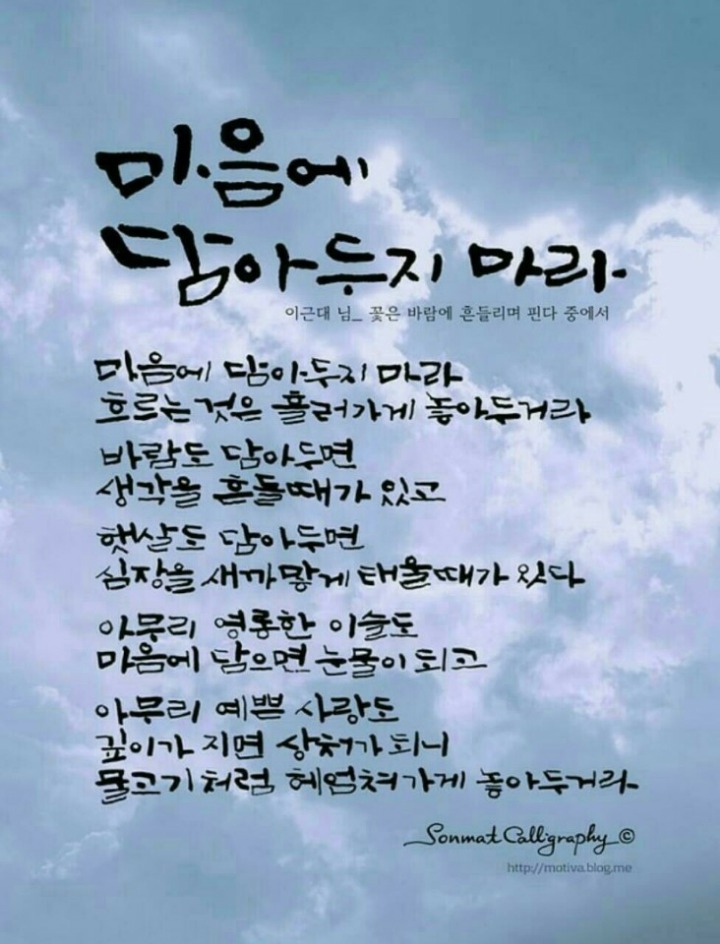 마음에
담아두지 마라
이근대 님_ 꽃은 바람에 흔들리며 핀다 중에서
마음에 담아두지 마라
흐르는 것은 흘러가게 놓아두거라
바람도 담아두면
생각을 흔들때가 있고
햇살도 담아두면
심장을 새까맣게 태울때가 있다
아무리 영롱한 이슬도
마음에 담으면 눈물이 되고
아무리 예쁜 사랑도
깊이가 지면 상처가 되니
물고기처럼 헤엄쳐가게 놓아두거라
Sonmat Calligraphy ©
http://motiva.blog.me